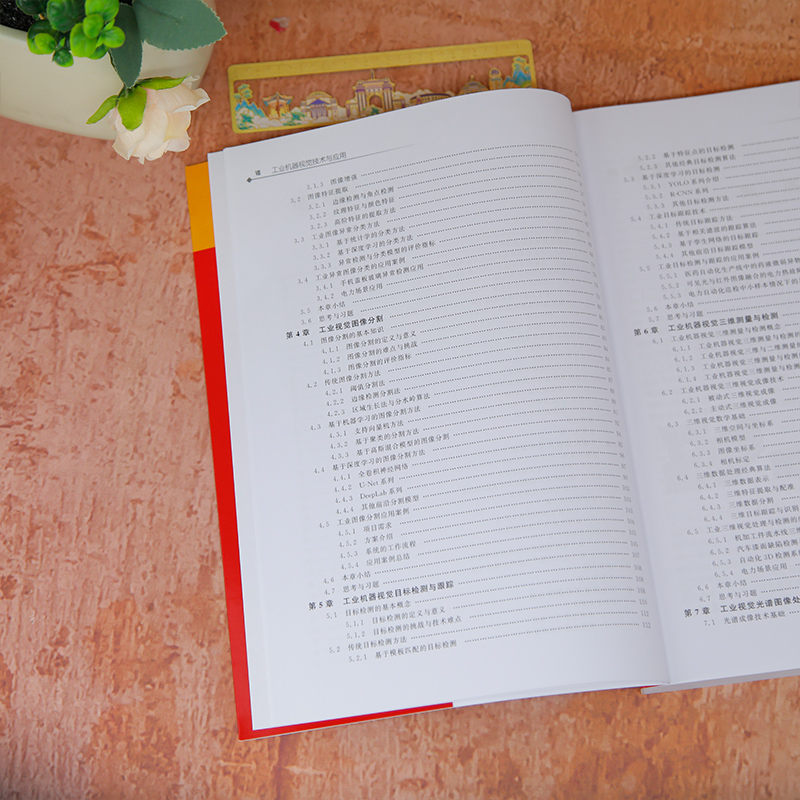 工业机器视觉技术与应用
3.1.3 图像增值
3.2 图像特征提取
3.2.1 边缘检测与角点检测
3.2.2 纹理特征与颜色特征
3.2.3 高阶特征的提取方法
3.3 工业图像异常分类方法
3.3.1 基于统计学的分类方法
3.3.2 基于深度学习的分类方法
3.3.3 异常检测与分类模型的评价指标
3.4 工业异常图像分类的应用案例
3.4.1 手机盖板玻璃异常检测应用
3.4.2 电力场景应用
3.5 本章小结
3.6 思考与习题
第4章 工业视觉图像分割
4.1 图像分割的基本知识
4.1.1 图像分割的定义与意义
4.1.2 图像分割的难点与挑战
4.1.3 图像分割的评价指标
4.2 传统图像分割方法
4.2.1 阈值分割法
4.2.2 边缘检测分割法
4.2.3 区域生长法与分水岭算法
4.3 基于机器学习的图像分割方法
4.3.1 支持向量机方法
4.3.2 基于聚类的分割方法
4.3.3 基于高斯混合模型的图像分割
4.4 基于深度学习的图像分割方法
4.4.1 全卷积神经网络
4.4.2 U-Net系列
4.4.3 DeepLab系列
4.4.4 其他前沿分割模型
4.5 工业图像分割应用案例
4.5.1 项目需求
4.5.2 方案介绍
4.5.3 系统的工作流程
4.5.4 应用案例总结
4.6 本章小结
4.7 思考与习题
第5章 工业机器视觉目标检测与跟踪
5.1 目标检测的基本概念
5.1.1 目标检测的定义与意义
5.1.2 目标检测的挑战与技术难点
5.2 传统目标检测方法
5.2.1 基于模板匹配的目标检测 112
5.2.2 基于特征点的目标检测
5.2.3 其他经典目标检测算法
5.3 基于深度学习的目标检测
5.3.1 YOLO系列介绍
5.3.2 R-CNN系列
5.3.3 其他目标检测方法
5.4 工业目标跟踪技术
5.4.1 传统目标跟踪方法
5.4.2 基于相关滤波的跟踪算法
5.4.3 基于孪生网络的目标跟踪
5.4.4 其他前沿目标跟踪模型
5.5 工业目标检测与跟踪的应用案例
5.5.1 医药自动化生产线中的药液微弱异物
5.5.2 可见光与红外图像融合的电力热故
5.5.3 电力自动化巡检中小样本情况下的
5.6 本章小结
5.7 思考与习题
第6章 工业机器视觉三维测量与检测
6.1 工业机器视觉三维测量与检测概念
6.1.1 工业机器视觉三维测量与检测的
6.1.2 工业机器视觉三维测量与检测
6.1.3 工业机器视觉三维与二维测量
6.1.4 工业机器视觉三维测量与检测
6.2 工业机器视觉三维视觉成像技术
6.2.1 被动式三维视觉成像
6.2.2 主动式三维视觉成像
6.3 三维视觉数学基础
6.3.1 三维空间与坐标系
6.3.2 相机模型
6.3.3 图像坐标系
6.3.4 相机标定
6.4 三维数据处理经典算法
6.4.1 三维数据表示
6.4.2 三维特征提取与配准
6.4.3 三维数据分割
6.4.4 三维目标跟踪与识别
6.5 工业三维视觉处理与检测的
6.5.1 机加工件流水线三
6.5.2 汽车漆面缺陷检测
6.5.3 自动化3D检测系
6.5.4 电力场景应用
6.6 本章小结
6.7 思考与习题
第7章 工业视觉光谱图像处
7.1 光谱成像技术基础